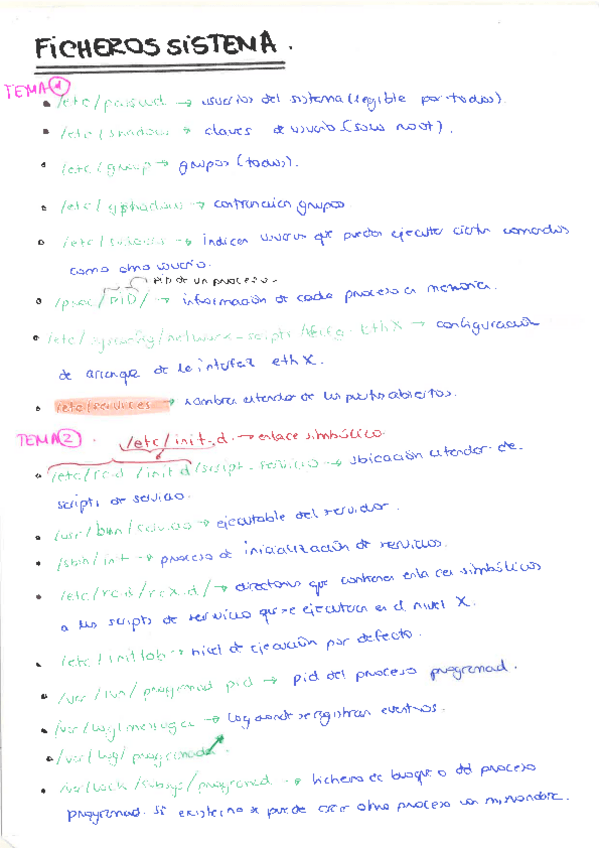 FICHEROS SISTEMA.
TEMA 1
/etc/passwd → usuarios del sistema (legible por todos).
/etc/shadow → claves de usuario (solo root).
/etc/group → grupos (todos).
/etc/gshadow → grupos
/etc/sudoers → indican usuarios que pueden ejecutar ciertos comandos
como otro usuario.
PID de un proceso.
/proc/PID/ → información de cada proceso en memoria.
/etc/sysconfig/network-scripts/ifcfg-ethX → configuración
de arranque de la interfaz ethX.
/etc/services → nombres estandar de los puertos abiertos.
TEMA 2. /etc/init.d → enlace simbólico
/etc/rc.d/init.d/script-servicio → ubicación estandar de
scripts de servicio.
/usr/sbin/servicio → ejecutable del servidor.
/sbin/init → proceso de inicialización de servicios.
/etc/rc.d/rcX.d/ → directorios que contienen enlaces simbólicos
a los scripts de servicio que se ejecutan en el nivel X.
/etc/inittab → nivel de ejecución por defecto.
/var/run/programad.pid → pid del proceso programad.
/var/log/messages → Log donde se registran eventos.
/var/log/programad
/var/lock/subsys/programad → fichero de bloqueo del proceso
programad. Si existe no se puede crear otro proceso con mismo nombre.